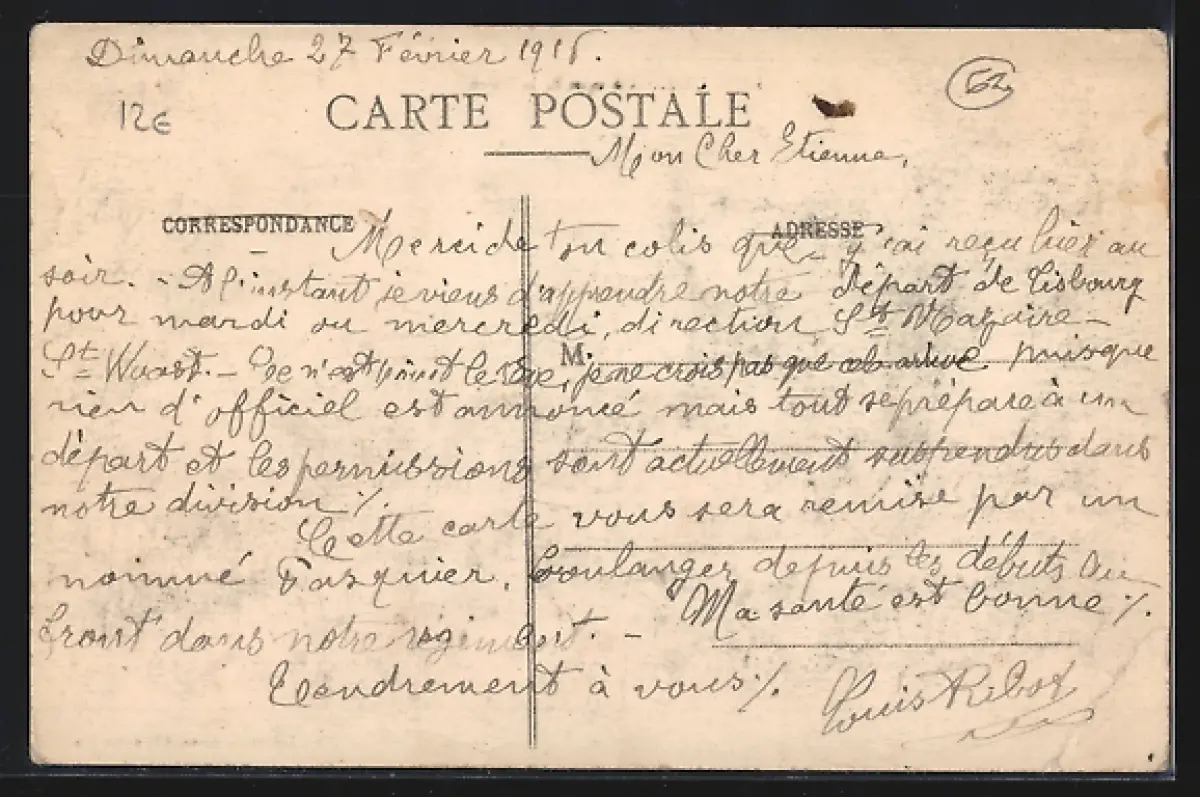 Dimanche 27 Février 1916.
62
12€
CARTE POSTALE
Mon Cher Etienne,
CORRESPONDANCE
ADRESSE
Merci de ton colis que j'ai reçu hier au
soir. - A l'instant je viens d'apprendre notre départ de Lisbourg
pour mardi ou mercredi, direction St Nazaire -
St Waast. - Ce n'est point le rêve, je ne crois pas que cela arrive puisque
M.
rien d'officiel est annoncé mais tout se prépare à un
départ et les permissions sont actuellement suspendues dans
notre division ./.
Cette carte vous sera remise par un
nommé Pasquier, boulanger depuis les débuts du
front dans notre régiment. - Ma santé est bonne ./.
Tendrement à vous ./.
Louis